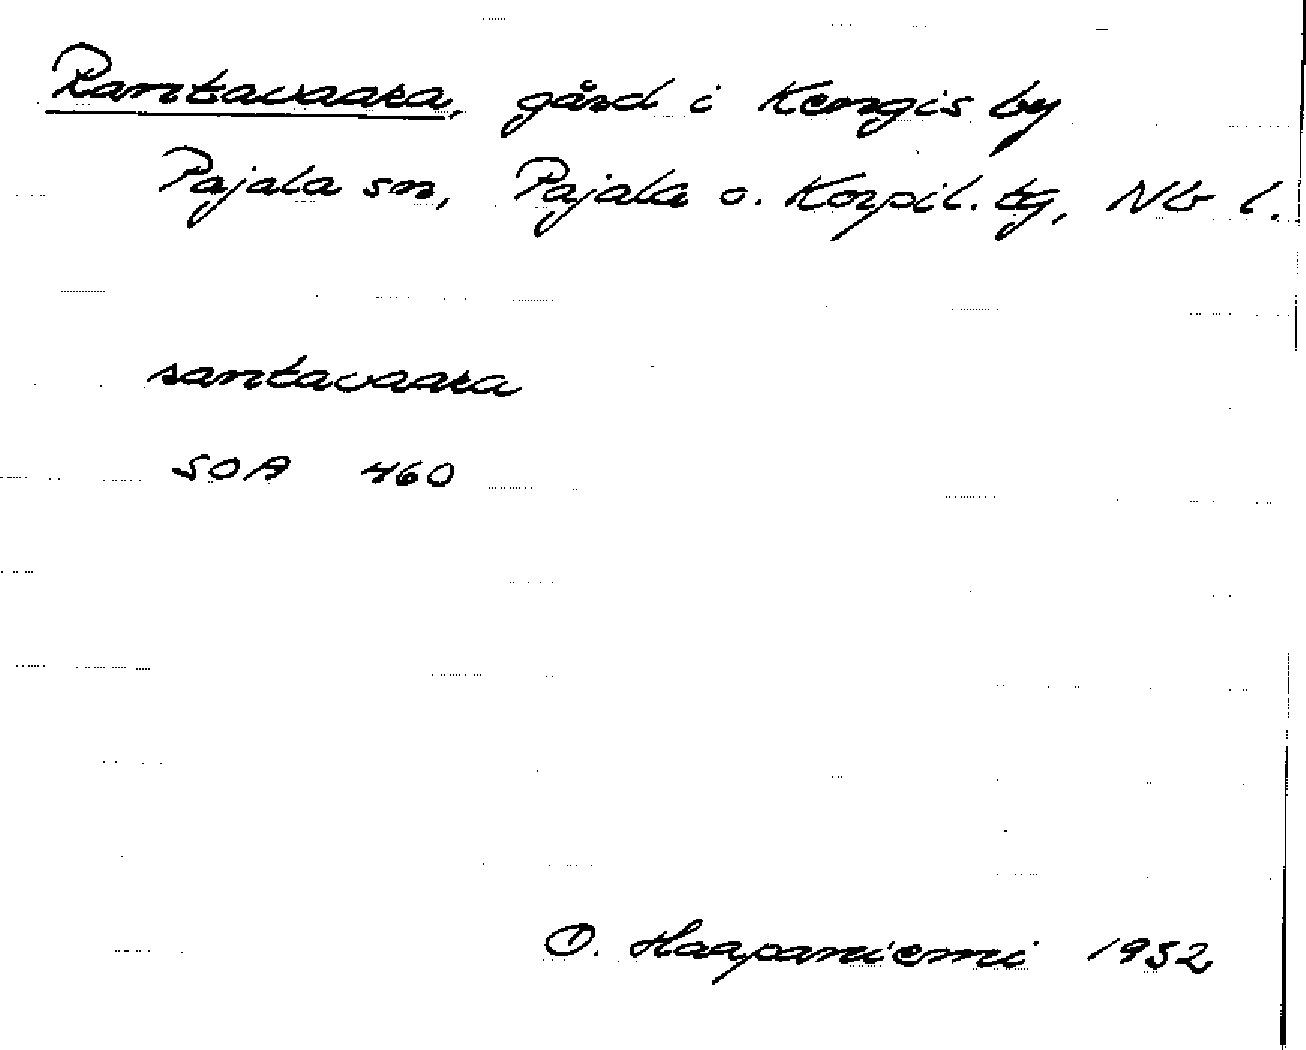 Rantavaara, gård i Kengis by
Pajala sn, Pajala o. Korpil. tg, Nb l.
rantavaara
SOA 460
O. Haapaniemi 1952